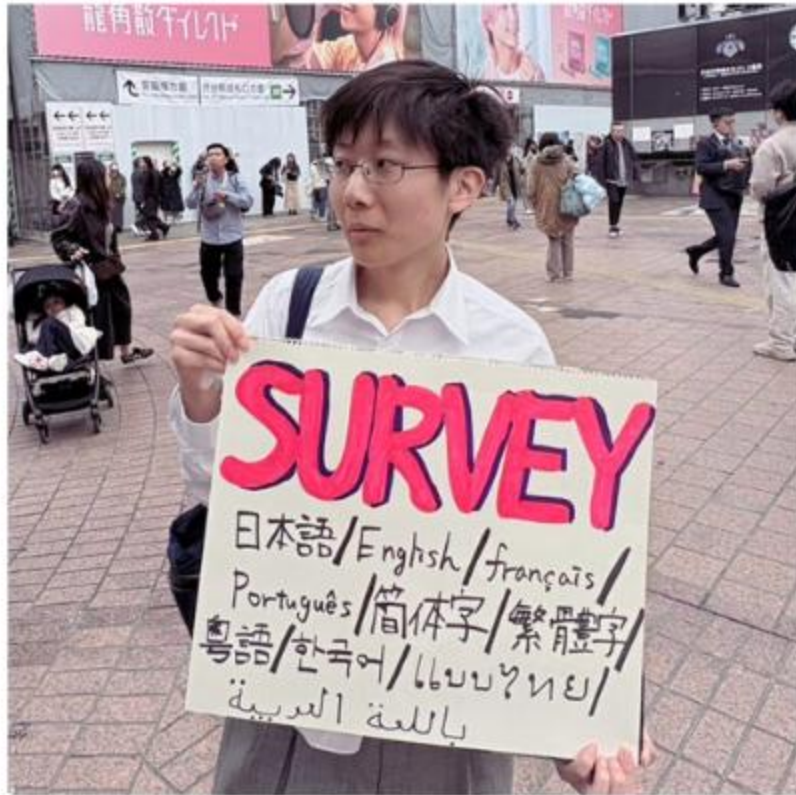 龍角散ダイレクト
SURVEY
日本語/English/français/
Português/簡体字/繁體字/
粤語/한국어/แบบไทย/
باللغة العربية